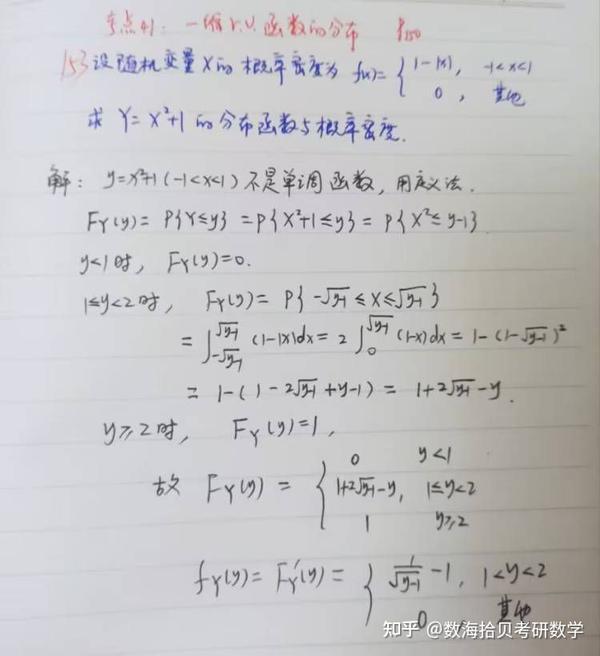 考点41: 一维r.v.函数的分布 P150
153 设随机变量X的概率密度为 f(x)={ 1-|x|, -1<x<1
0, 其他
求 Y=X²+1 的分布函数与概率密度.
解: y=x²+1 (-1<x<1) 不是单调函数, 用定义法.
F_Y(y)= P{Y≤y} = P{X²+1≤y} = P{X²≤y-1}
y<1时, F_Y(y)=0.
1≤y<2时, F_Y(y)= P{-√(y-1) ≤X≤√(y-1)}
= ∫_{-√(y-1)}^{√(y-1)} (1-|x|)dx = 2∫_0^{√(y-1)} (1-x)dx = 1-(1-√(y-1))²
= 1-(1-2√(y-1)+y-1) = 1+2√(y-1)-y.
y≥2时, F_Y(y)=1,
故 F_Y(y) = { 0 y<1
1+2√(y-1)-y, 1≤y<2
1 y≥2
f_Y(y)=F_Y'(y)= { 1/√(y-1) -1, 1<y<2
0 其他
知乎 @数海拾贝考研数学